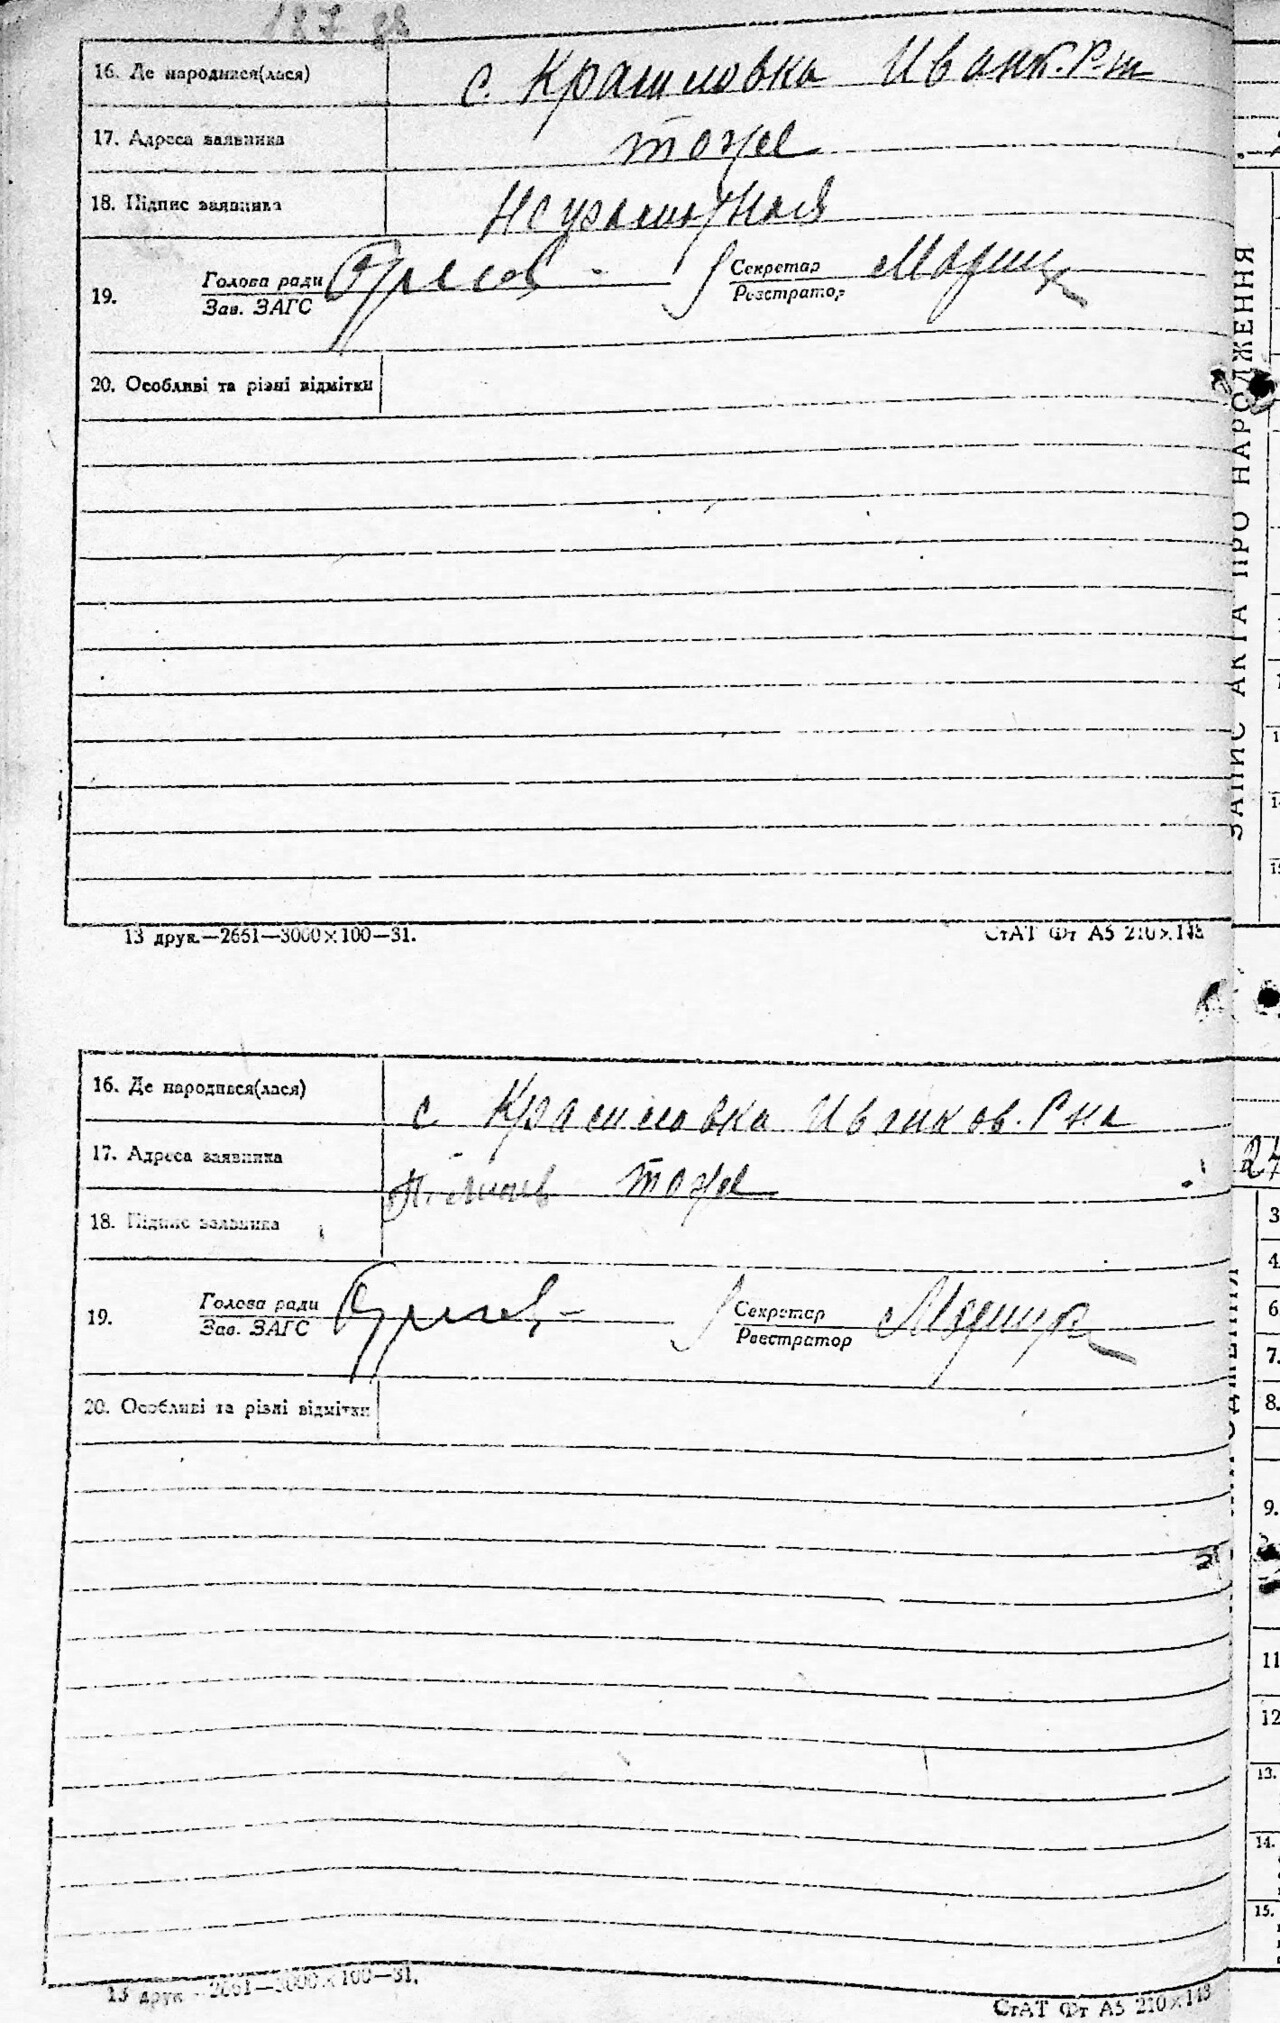 187 88
16. Де народився(лася)
с. Красиловка Иванк. Р-на
17. Адреса заявника
тоже
18. Підпис заявника
Неграмотная
19. Голова ради
Зав. ЗАГС
Секретар
Реєстратор
20. Особливі та різні відмітки
13 друк.—2651—3000×100—31.
СтАТ Фт А5 210×148
16. Де народився(лася)
с Красиловка Иванков. Р-на
17. Адреса заявника
тоже
18. Підпис заявника
19. Голова ради
Зав. ЗАГС
Секретар
Реєстратор
20. Особливі та різні відмітки
13 друк.—2651—3000×100—31.
СтАТ Фт А5 210×148
ЗАПИС АКТА ПРО НАРОДЖЕННЯ
27
3
4.
6
7.
8.
9.
11
12
13.
14.
15.